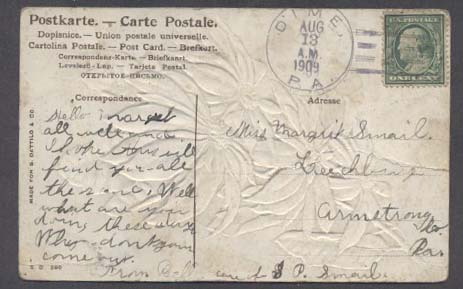 Postkarte. – Carte Postale.
Dopisnice. – Union postale universelle.
Cartolina Postale. – Post Card. – Brefkort.
Correspondenz-Karte. – Briefkaart.
Levelező-Lap. – Tarjeta Postal.
ОТКРЫТОЕ ПИСЬМО.
Correspondance
Adresse
AUG
13
A.M.
1909
PA.
U.S. POSTAGE
ONE CENT
MADE FOR S. DATTILO & CO.
Hello Margret
all well and
I hope this will
find you all
the same, Well
what are you
doin, these days
Why dont you
come out.
From
Miss Margrik Smail.
Leechburg
Armstrong
Co.
Pa.
care of S. P. Smail.